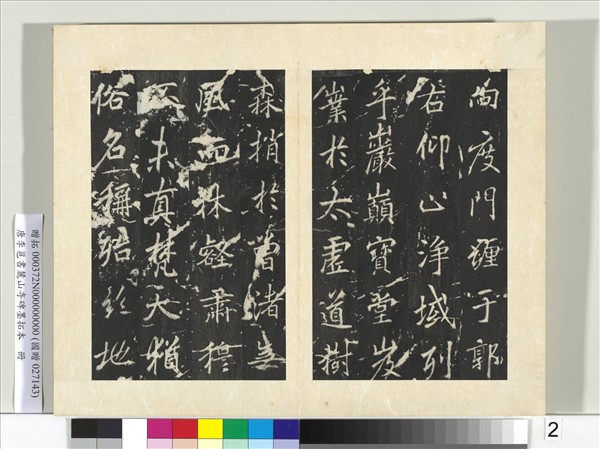 向度門纏于郭
右仰止淨域列
乎巖巔寶堂岌
嶪於太虛道樹
森梢於曾渚無
風而林壑肅穆
未真梵天猶
俗名稱殆絶地
贈拓 000372N000000000 (國贈 027143)
唐李邕書麓山寺碑墨拓本 冊
2